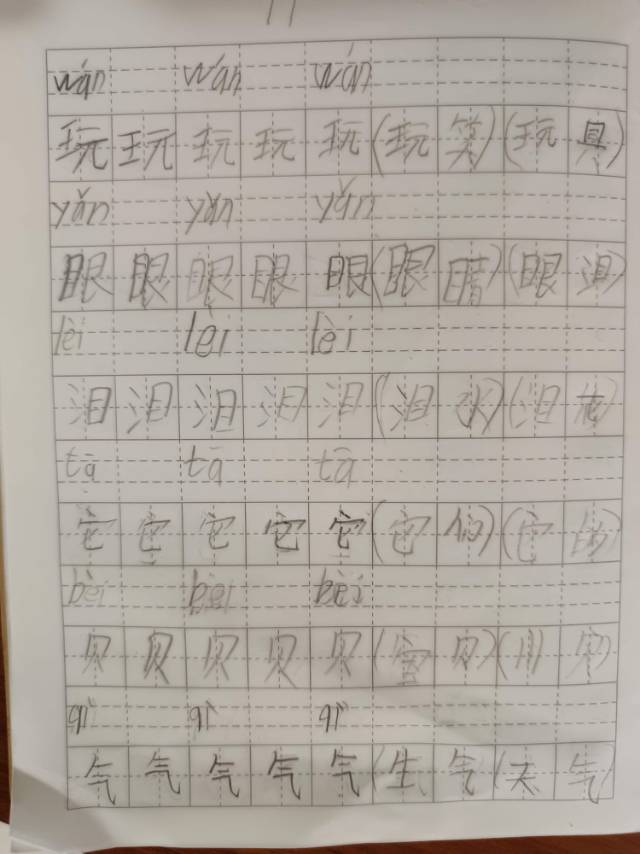 wán wán wán
玩 玩 玩 玩 玩 (玩 笑) (玩 具)
yǎn yǎn yǎn
眼 眼 眼 眼 眼 (眼 睛) (眼 泪)
lèi lèi lèi
泪 泪 泪 泪 泪 (泪 水) (泪 花)
tā tā tā
它 它 它 它 它 (它 们) (它 的)
bèi bèi bèi
贝 贝 贝 贝 贝 (宝 贝) (川 贝)
qì qì qì
气 气 气 气 气 (生 气) (天 气)